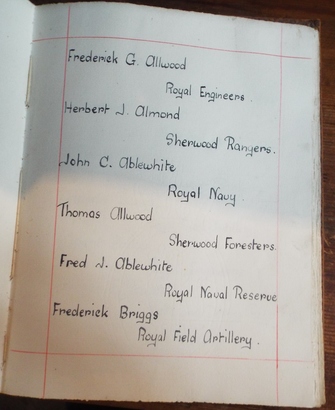 Frederick G. Allwood
Royal Engineers.
Herbert J. Almond
Sherwood Rangers.
John C. Ablewhite
Royal Navy.
Thomas Allwood
Sherwood Foresters.
Fred J. Ablewhite
Royal Naval Reserve
Frederick Briggs
Royal Field Artillery.